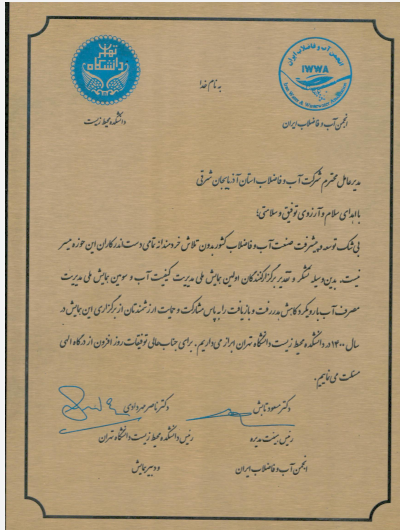 به نام خدا
IWWA
انجمن آب و فاضلاب ایران
دانشکده محیط زیست
مدیرعامل محترم شرکت آب و فاضلاب استان آذربایجان شرقی
با اهدای سلام و آرزوی توفیق و سلامتی؛
بی شک توسعه و پیشرفت صنعت آب و فاضلاب کشور بدون تلاش خردمندانه تمامی دست اندرکاران این حوزه میسر
نیست. بدین وسیله تشکر و تقدیر برگزارکنندگان اولین همایش ملی مدیریت کیفیت آب و سومین همایش ملی مدیریت
مصرف آب با رویکرد کاهش هدررفت و بازیافت را به پاس مشارکت و حمایت ارزشمندتان از برگزاری این همایش در
سال ۱۴۰۰ در دانشکده محیط زیست دانشگاه تهران ابراز می داریم. برای جنابعالی توفیقات روز افزون از درگاه الهی
مسئلت می نماییم.
دکتر مسعود تابش
رئیس هیئت مدیره
انجمن آب و فاضلاب ایران
دکتر ناصر مهردادی
رئیس دانشکده محیط زیست دانشگاه تهران
و دبیر همایش